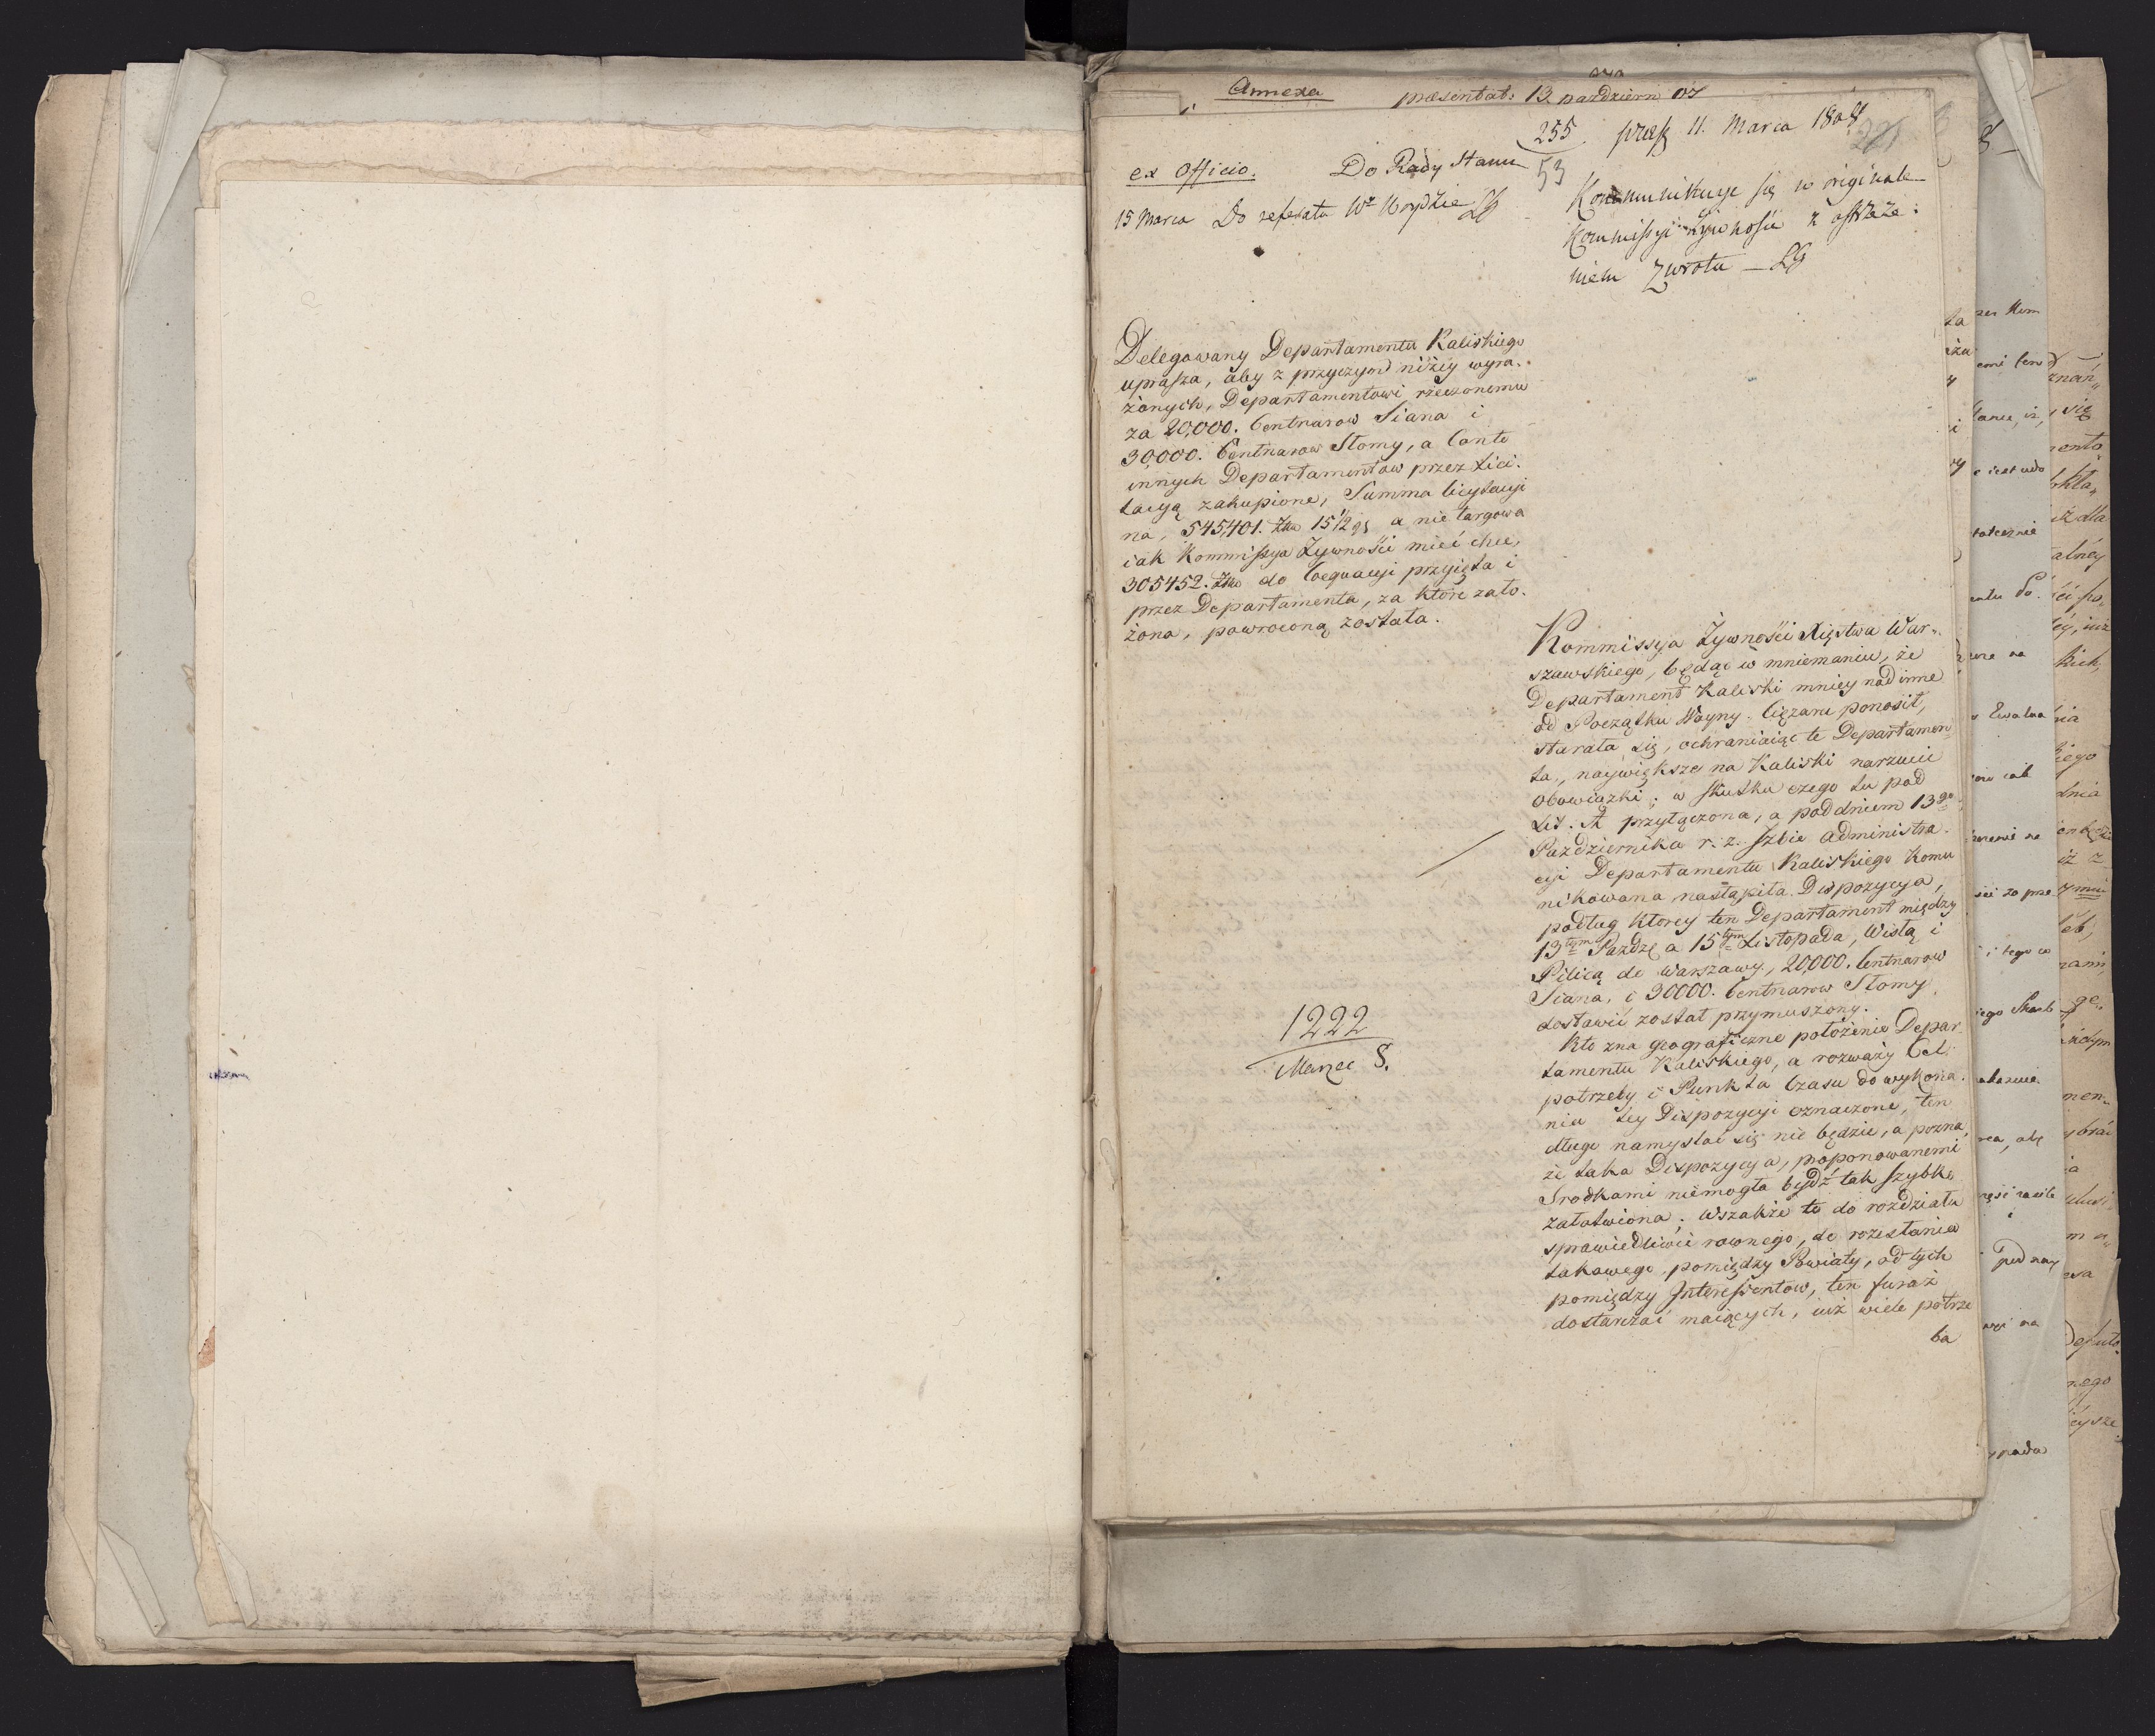 Annexa præsentat: 13. pazdziern 07
255 præs 11. Marca 1808
53
ex Officio. Do Rady Stanu
15 Marca Do referatu
Kommunikuje się w originale
Kommissyi Żywnośći z ostrzeże:
niem zwrotu
Delegowany Departamentu Kaliskiego
uprasza, aby z przyczyn niżey wyra.
żonych, Departamentowi rzeczonemu
za 20,000. Centnarow Siana i
30,000. Centnarow Słomy, a Conto
innych Departamentow przez Lici.
tacyą zakupione, Summa licytacyi
na, 545,401. Złłu 15 1/2 gs a nie targowa
iak Kommissya Żywnośći mieć chce,
305452. Złłu do Coequacyi przyięta i
przez Departamenta, za ktore zało.
żona, powroconą została.
1222
Marzec 8.
Kommissya Żywnośći Xięstwa War„
szawskiego, będąc w mniemaniu, że
Departament Kaliski mniey nad inne
od Początku Woyny ciężaru ponosił,
starała się, ochraniaiąc te Departamen
ta, naywiększe na Kaliski narzucić
obowiązki; w skutku czego tu pod
Lit: A przyłączona, a pod dniem 13go
Pazdziernika r. z. Izbie Administra.
cyi Departamentu Kaliskiego komu
nikowana nastąpiła Dispozycya,
podług ktorey ten Departament między
13tym Pazdz: a 15tym Listopada, Wisłą i
Pilicą do Warszawy, 20000. Centnarow
Siana, i 30000. Centnarow Słomy,
dostawić został przymuszony.
Kto zna geograficzne położenie Depar
tamentu Kaliskiego, a rozważy Cel
potrzeby i Punkta Czasu do wykona.
nia tey Dispozycyi oznaczone, ten
długo namyslać się nie będzie, a pozna,
że taka Dispozycya, poponowanemi
Srodkami niemogła bydź tak szybko
załatwiona; wszakże to do rozdziału
sprawiedliwie rownego, do rozesłania
takowego pomiędzy Powiaty, od tych
pomiędzy Interessentow, ten furaż
dostarczać maiących, iuż wiele potrze
ba